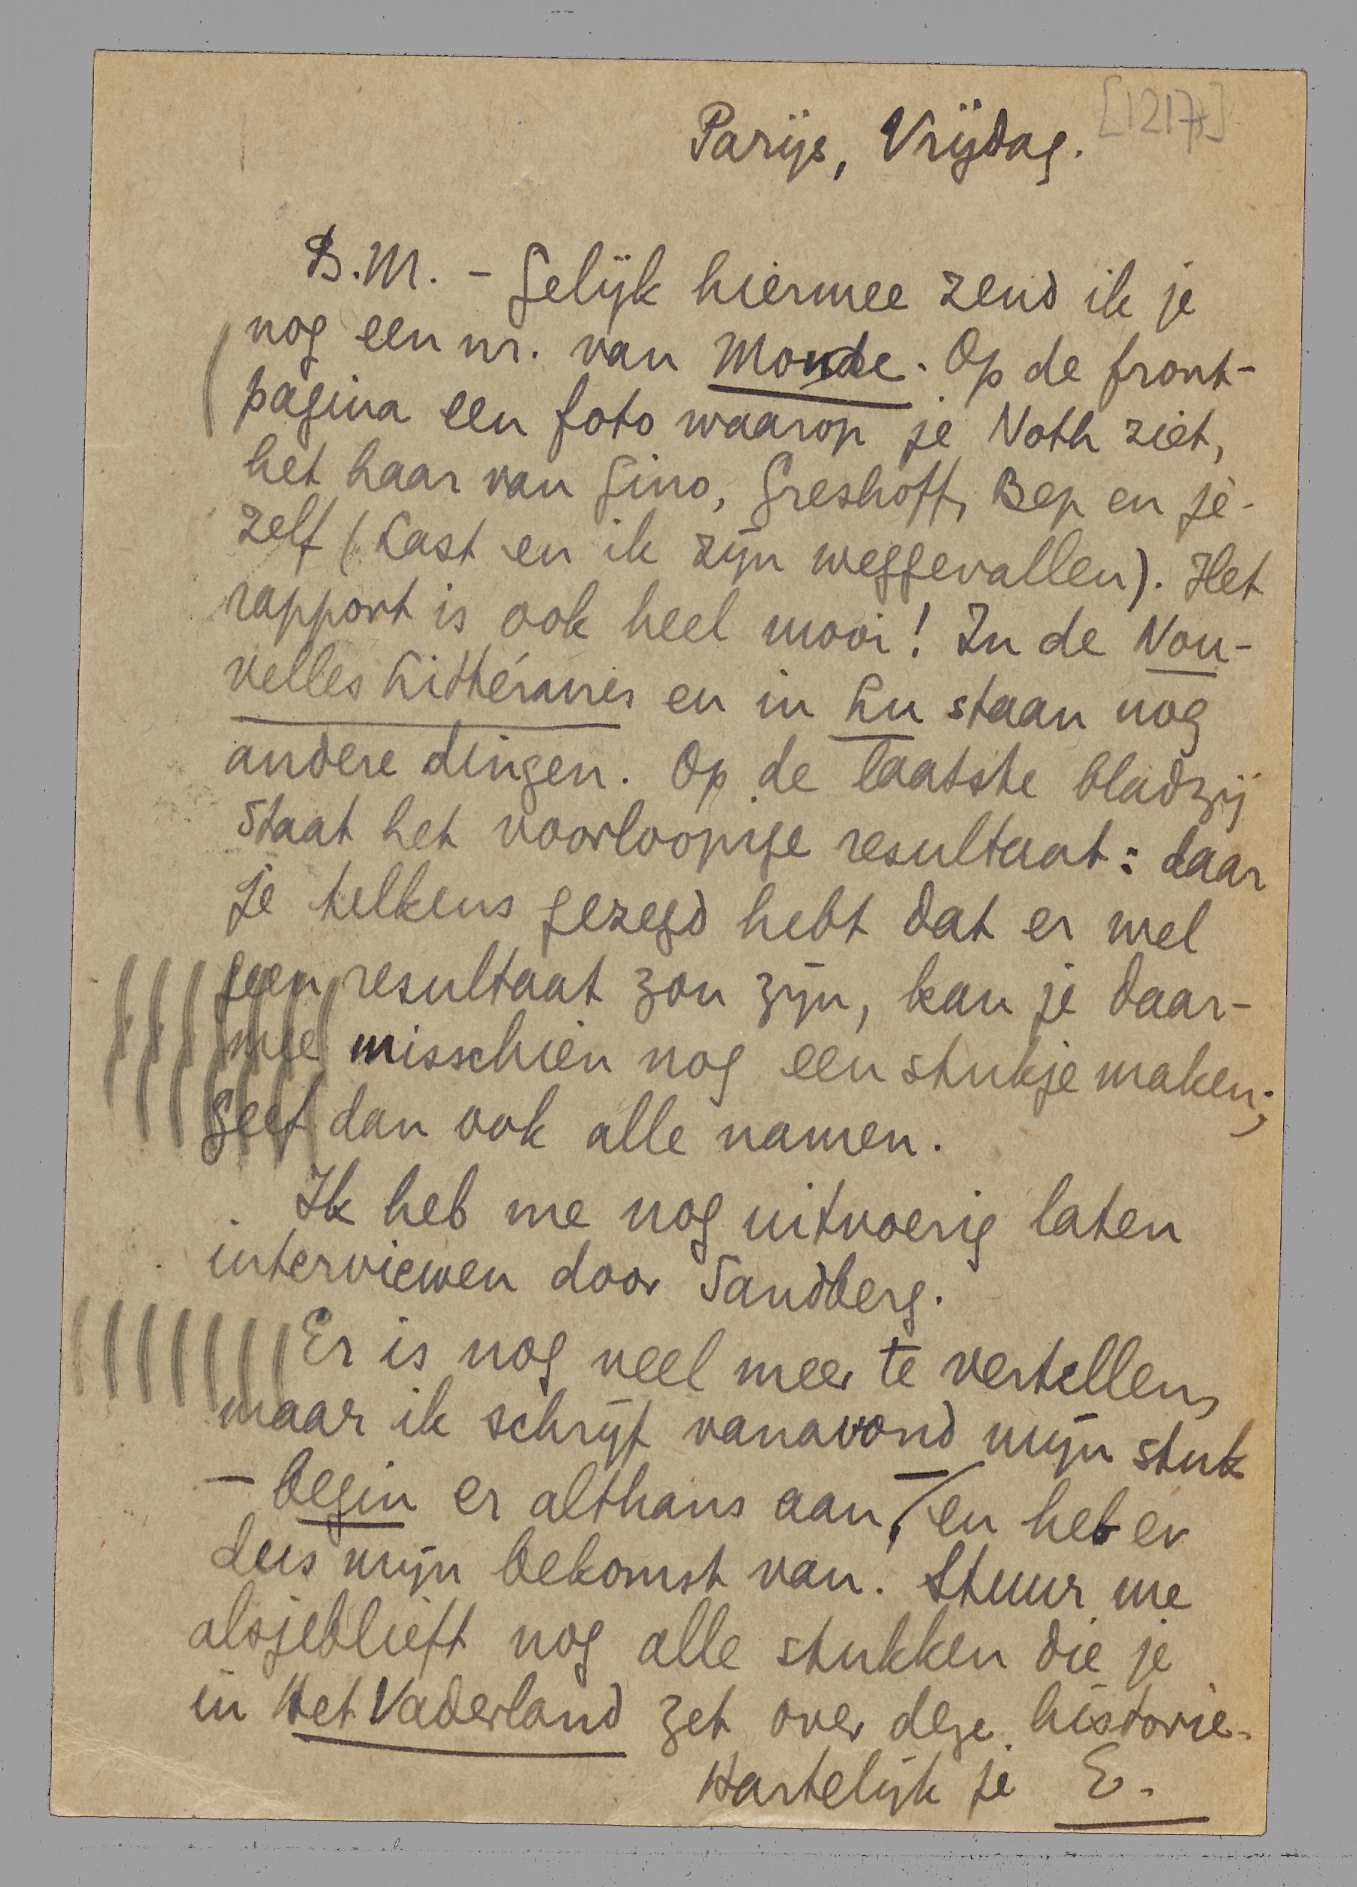 [1217]
Parijs, Vrijdag.
B.M. - Gelijk hiermee zend ik je
nog een nr. van Monde. Op de front-
pagina een foto waarop je Noth ziet,
het haar van Gino, Greshoff, Bep en je-
zelf (Last en ik zijn weggevallen). Het
rapport is ook heel mooi! In de Nou-
velles Littéraires en in Lu staan nog
andere dingen. Op de laatste bladzij
staat het voorloopige resultaat: daar
je telkens gezegd hebt dat er wel
geen resultaat zou zijn, kan je daar-
mee misschien nog een stukje maken;
geef dan ook alle namen.
Ik heb me nog uitvoerig laten
interviewen door Sandberg.
Er is nog veel meer te vertellen,
maar ik schrijf vanavond mijn stuk
- begin er althans aan, - en heb er
dus mijn bekomst van. Stuur me
alsjeblieft nog alle stukken die je
in Het Vaderland zet over deze historie.
Hartelijk je E.